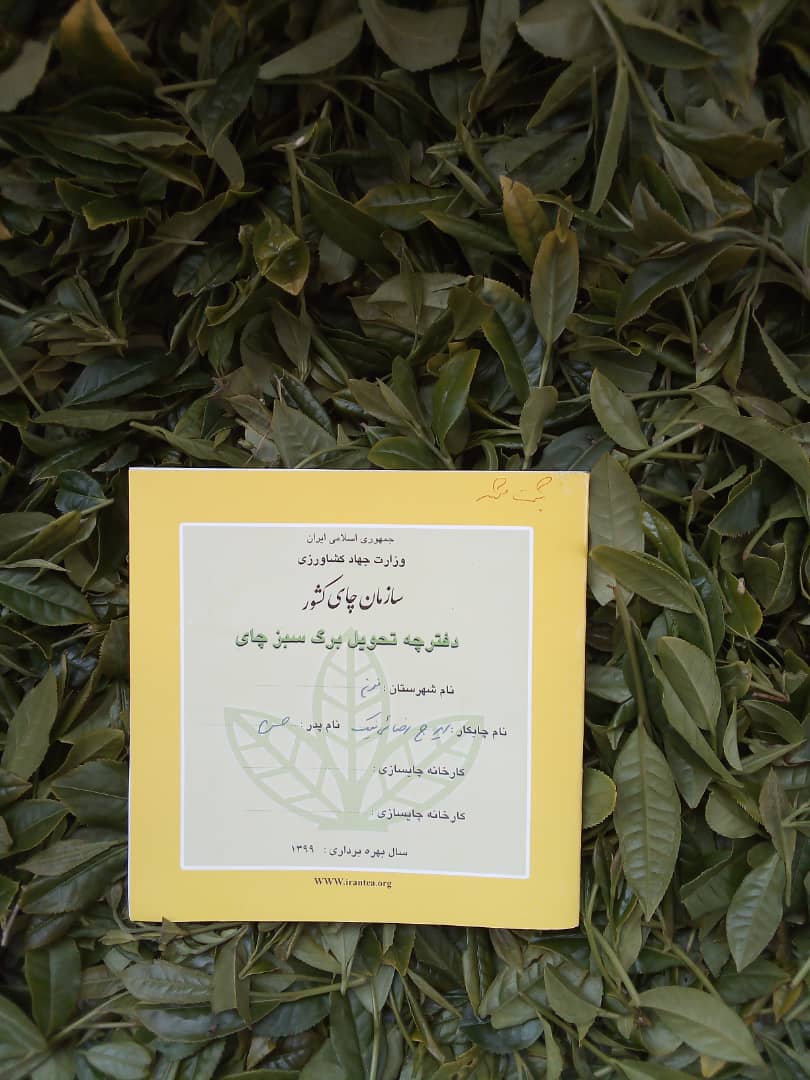 ثبت شد
جمهوری اسلامی ایران
وزارت جهاد کشاورزی
سازمان چای کشور
دفترچه تحویل برگ سبز چای
نام شهرستان :
نام چایکار : ایرج رضائی نیک نام پدر : حسن
کارخانه چایسازی :
کارخانه چایسازی :
سال بهره برداری : ۱۳۹۹
WWW.irantea.org